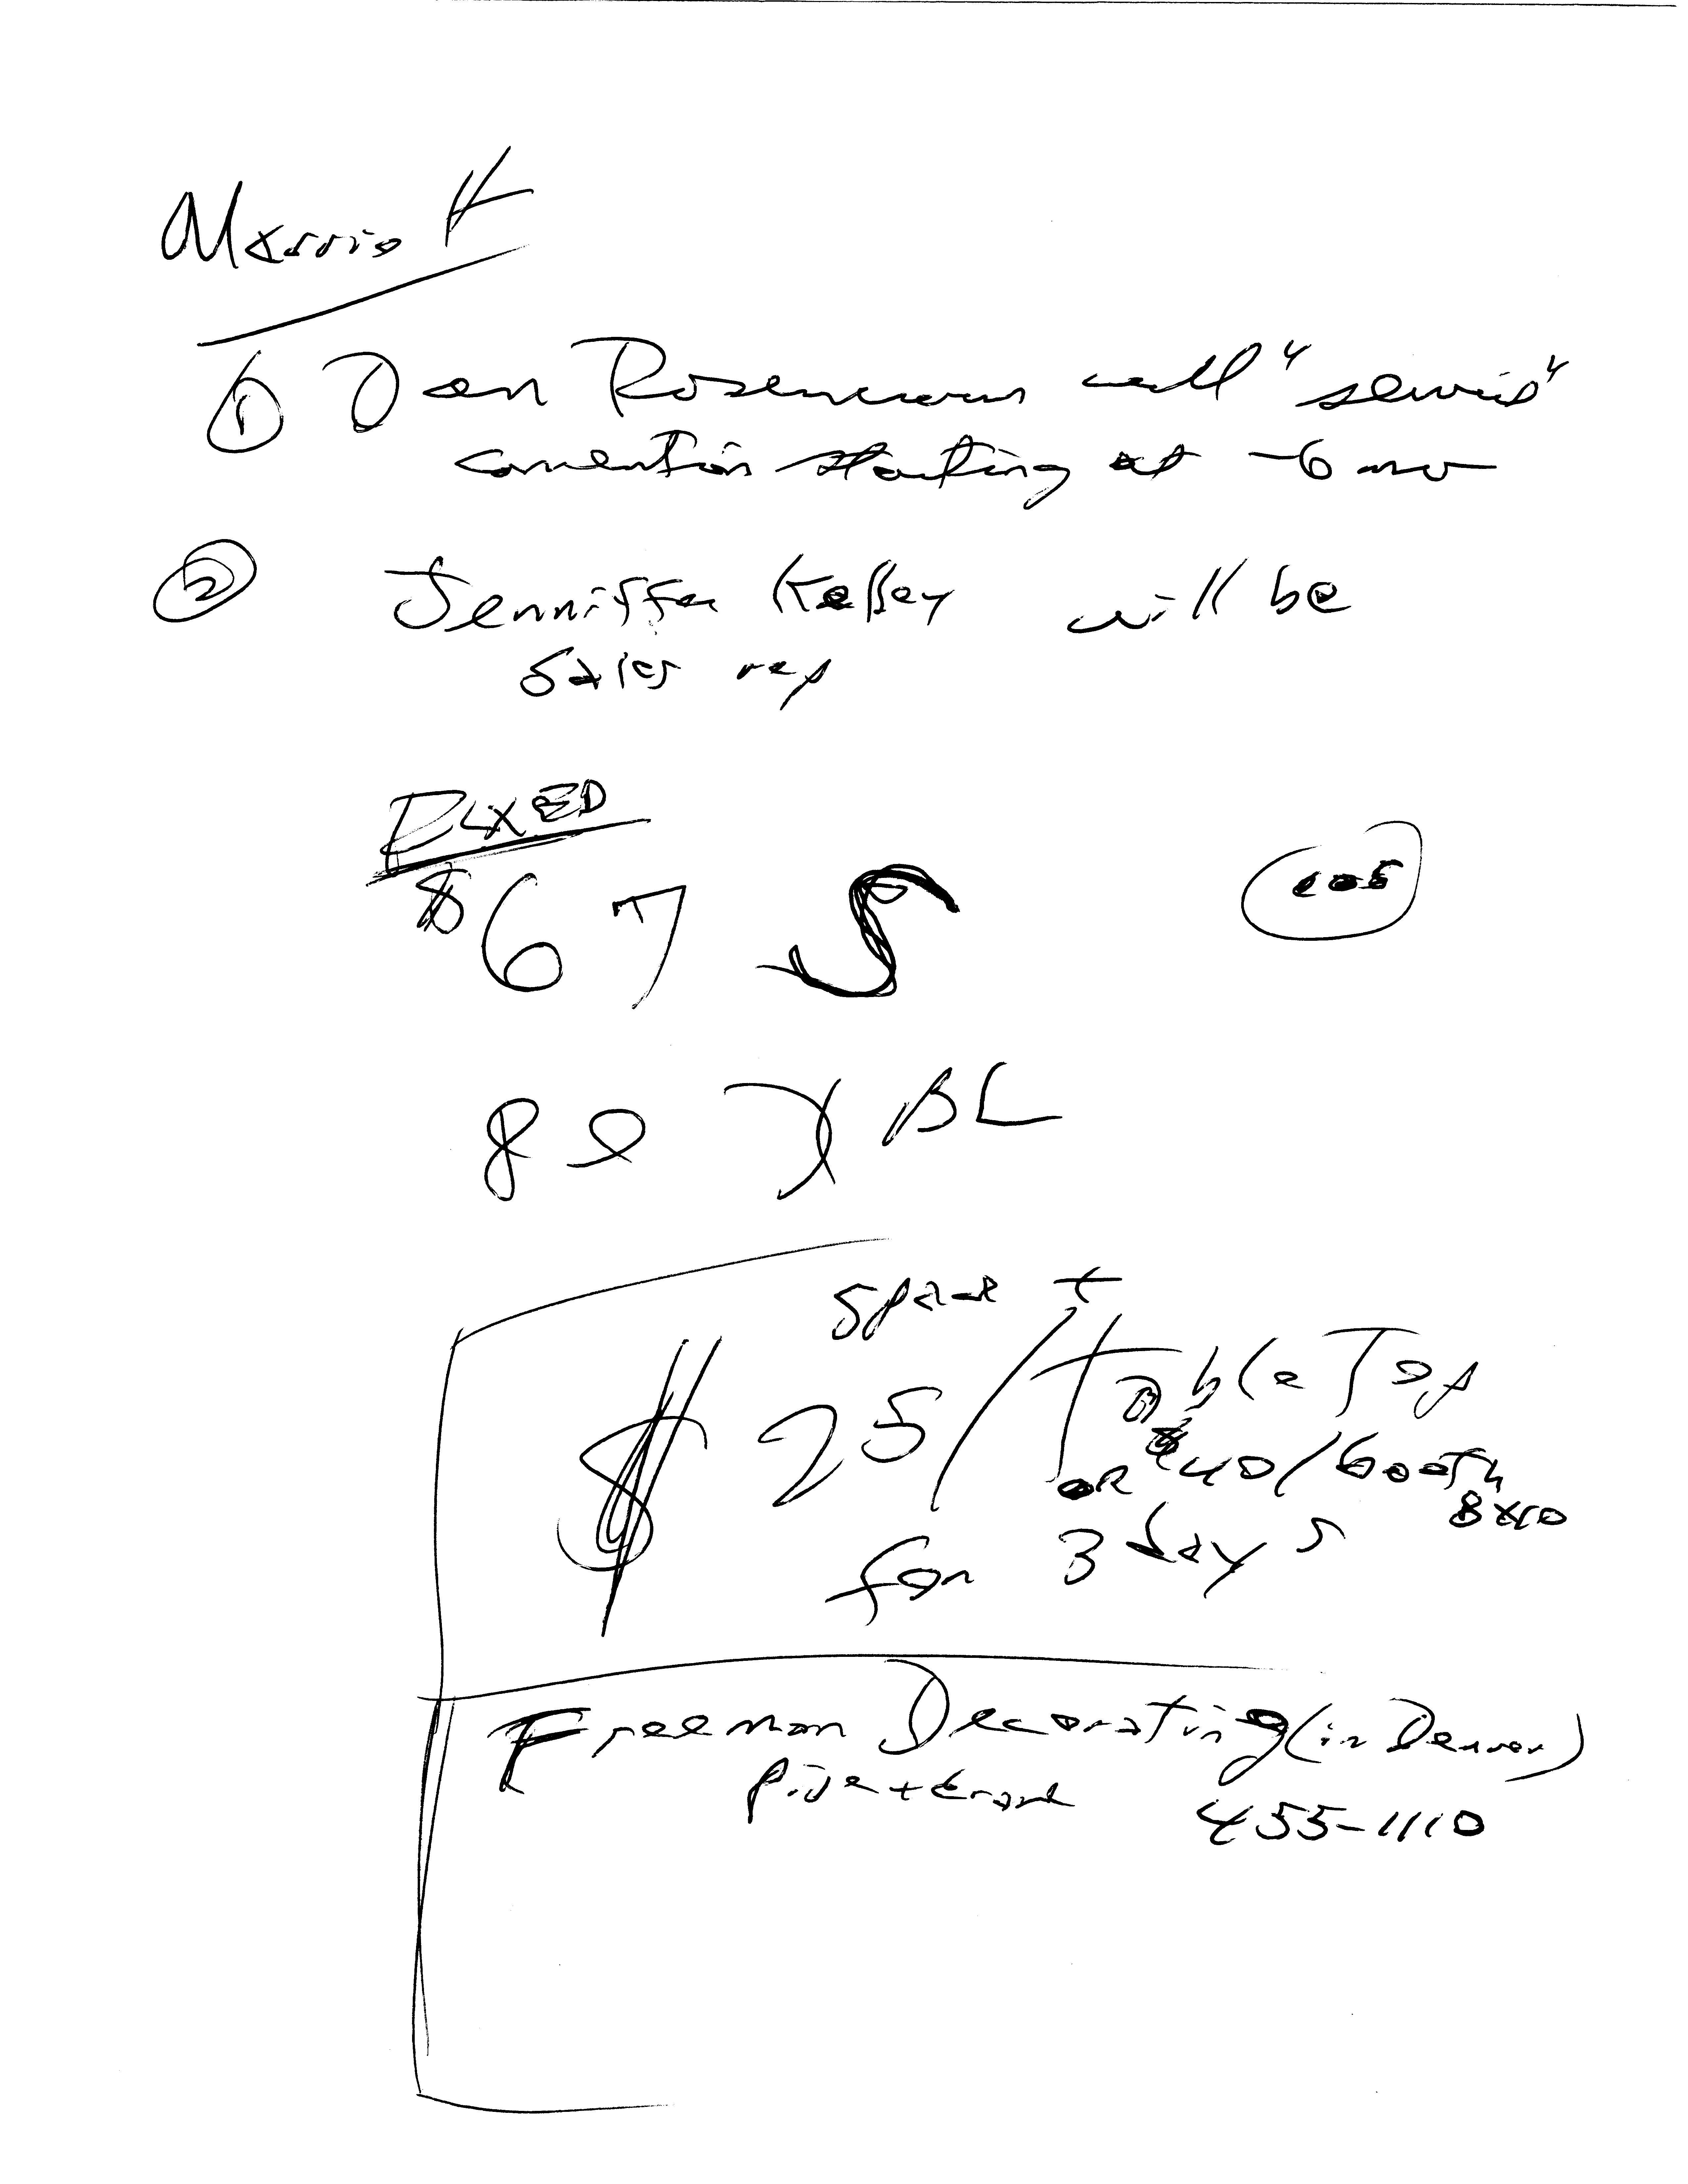 Marriott
① Dan Rosenman will "service"
convention starting at -6 mo
② Jenniffer Kelley will be
Sales rep
FIXED
$67 S
80 X BL
Space +
$25/table Top
OR $40/booth
8x10
for 3 days
Freeman Decorating (in Denver)
Pipe + Drape 455-1110